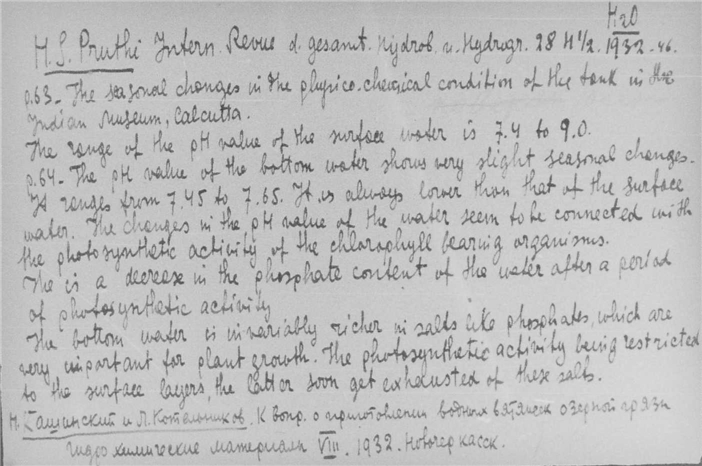 H2O
H.S. Pruthi Intern. Revue d. gesamt. Hydrob. u. Hydrogr. 28 H 1/2. 1932 - 46.
p.63 - The seasonal changes in the physico-chemical condition of the tank in the
Indian Museum, Calcutta.
The range of the pH value of the surface water is 7.4 to 9.0.
p.64 - The pH value of the bottom water shows very slight seasonal changes.
It ranges from 7.45 to 7.65. It is always lower than that of the surface
water. The changes in the pH value of the water seem to be connected with
the photosynthetic activity of the chlorophyll bearing organisms.
The is a decrease in the phosphate content of the water after a period
of photosynthetic activity
The bottom water is invariably richer in salts like phosphates, which are
very important for plant growth. The photosynthetic activity being restricted
to the surface layers, the latter soon get exhausted of these salts.
Н. Кащинский и Л. Котельников. К вопр. о приготовлении водных вытяжек озерной грязи
Гидрохимические материалы VIII. 1932. Новочеркасск.